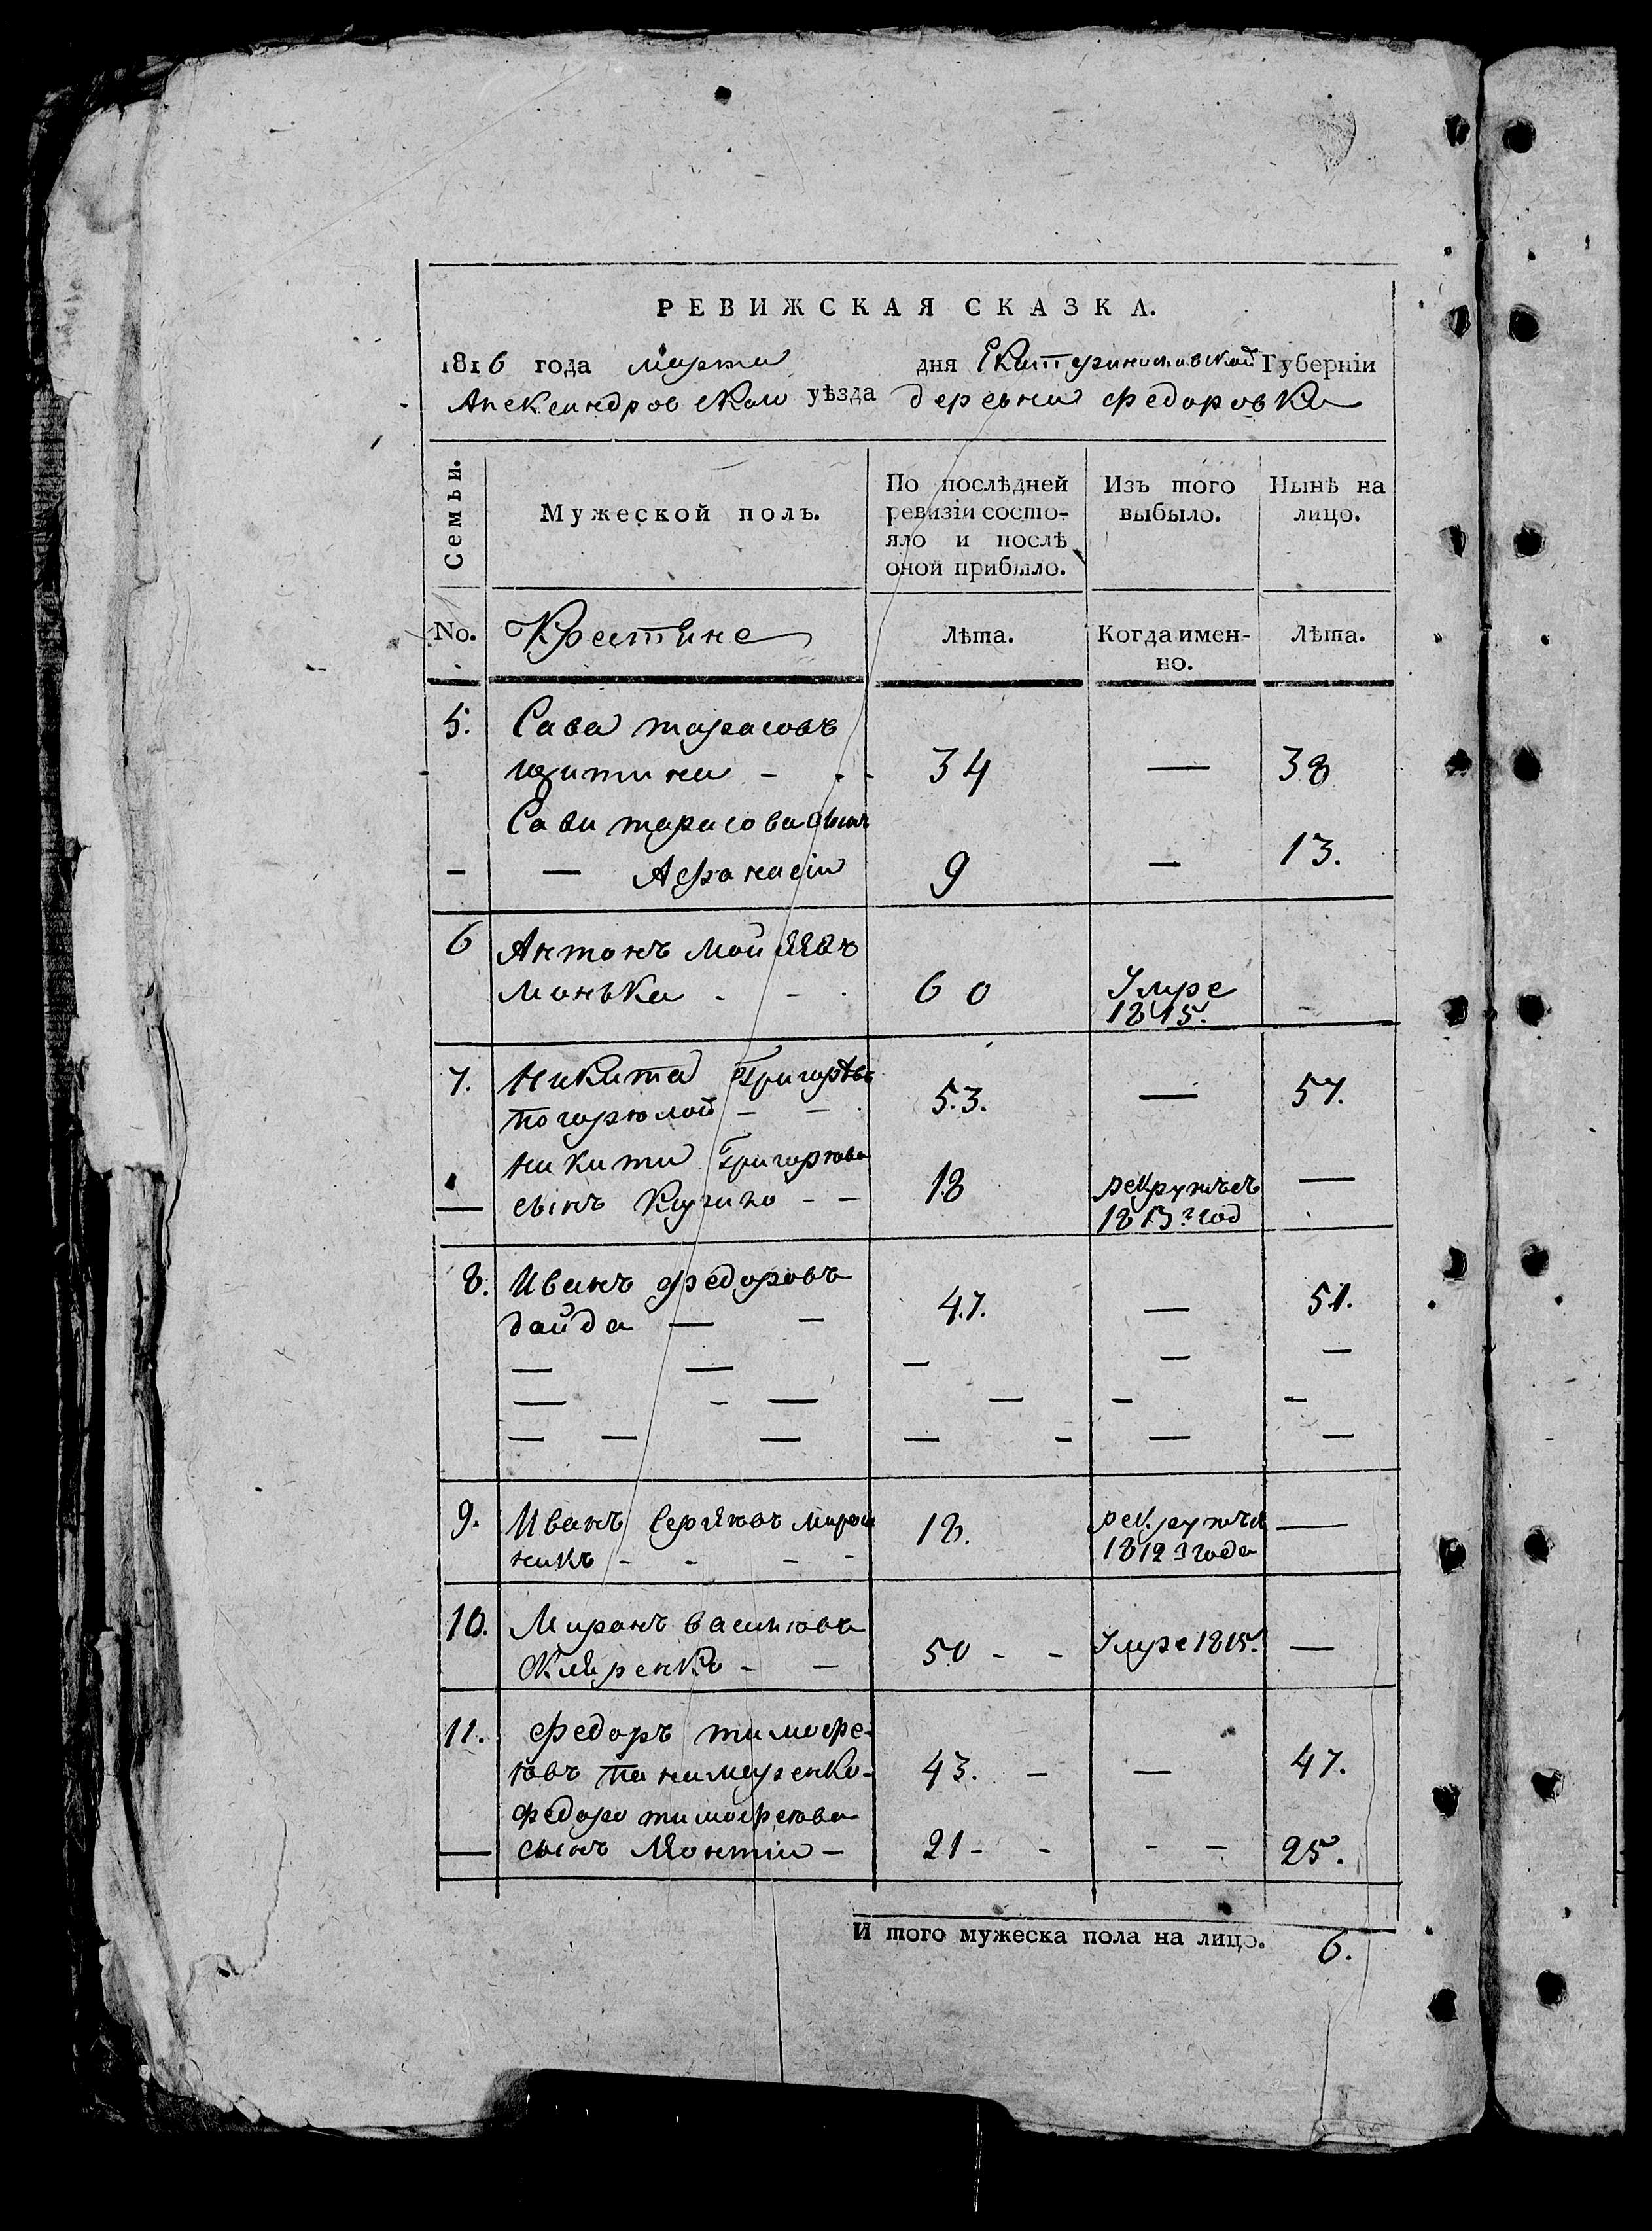 РЕВИЖСКАЯ СКАЗКА.
1816 года марта дня Екатеринославской Губерніи
Александровскаго уѣзда деревни федоровки
Семьи.
Мужеской полъ.
По послѣдней ревизіи состо-
яло и послѣ
оной прибыло.
Изъ того
выбыло.
Нынѣ на
лицо.
No. Крестяне Лѣта. Когда имен-
но.
Лѣта.
5. Сава тарасовъ
34 — 38
Савы тарасова сынъ
— — Афанасіи 9 — 13.
6 Антонъ Мойсѣевъ
Манька - - . 60 Умре
1815.
-
7. Никита Григорьевъ
погорелой - - 53. — 57.
Никиты Григорьева
— сынъ - - 18 рекрутъ съ
1813го год
—
8. Иванъ федоровъ
дайда — — 47. — 51.
— — — — —
— - — — - -
— — — — - — —
9. Иванъ Сергѣевъ мирош
никъ - - - - 18. рекрутъ съ
1812го года
—
10. Миронъ васильевъ
- — 50 - - Умре 1815. —
11. федоръ тимофе-
евъ панамаренко - 43. - — 47.
федора тимофеева
— сынъ Леонтіи - 21 - - - - 25.
И того мужеска пола на лицо. 6.